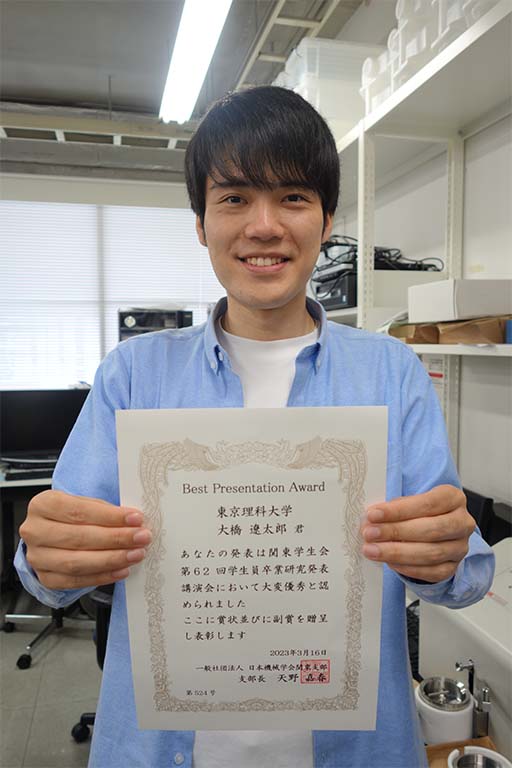 Best Presentation Award
東京理科大学
大橋 遼太郎 君
あなたの発表は関東学生会
第62回学生員卒業研究発表
講演会において大変優秀と認
められました
ここに賞状並びに副賞を贈呈
し表彰します
2023年3月16日
一般社団法人 日本機械学会関東支部
支部長 天野 嘉春
第524号